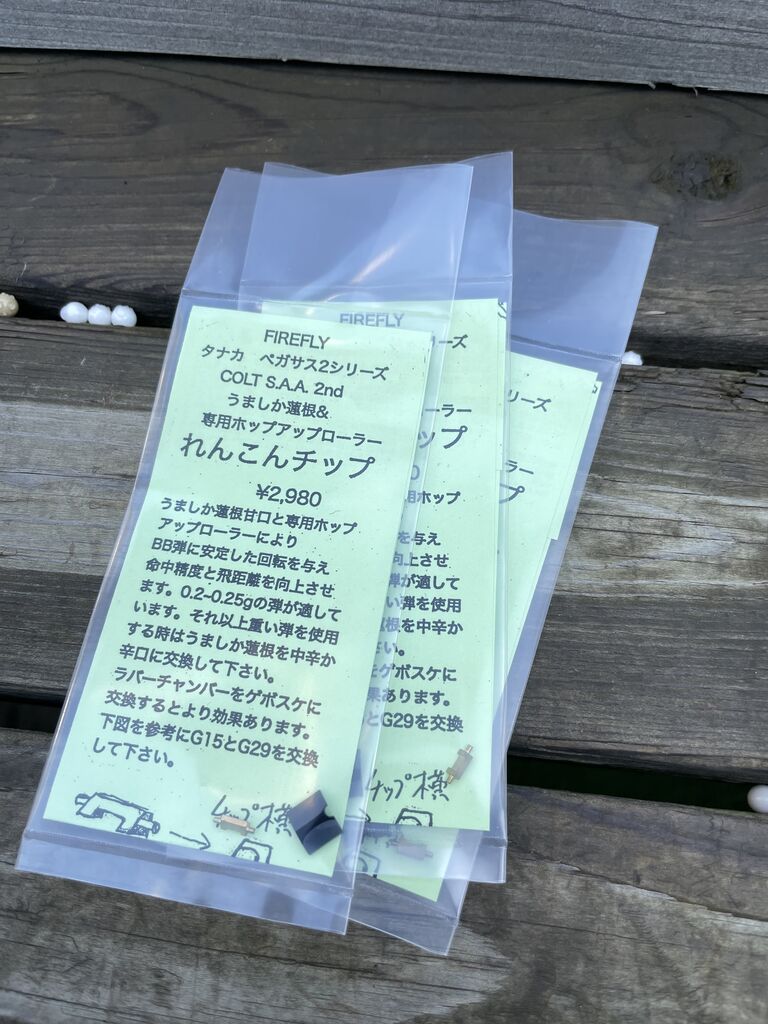 FIREFLY
タナカ ペガサス2シリーズ
COLT S.A.A. 2nd
うましか蓮根&
専用ホップアップローラー
れんこんチップ
¥2,980
うましか蓮根甘口と専用ホップ
アップローラーにより
BB弾に安定した回転を与え
命中精度と飛距離を向上させ
ます。0.2~0.25gの弾が適して
います。それ以上重い弾を使用
する時はうましか蓮根を中辛か
辛口に交換して下さい。
ラバーチャンバーをゲボスケに
交換するとより効果あります。
下図を参考にG15とG29を交換
して下さい。
チップ横
FIREFLY
ーズ
ローラー
ップ
0
用ホップ
を与え
向上させ
弾が適して
い弾を使用
根を中辛か
さい。
をゲボスケに
果あります。
とG29を交換
チップ横
リーズ
ーラー
プ